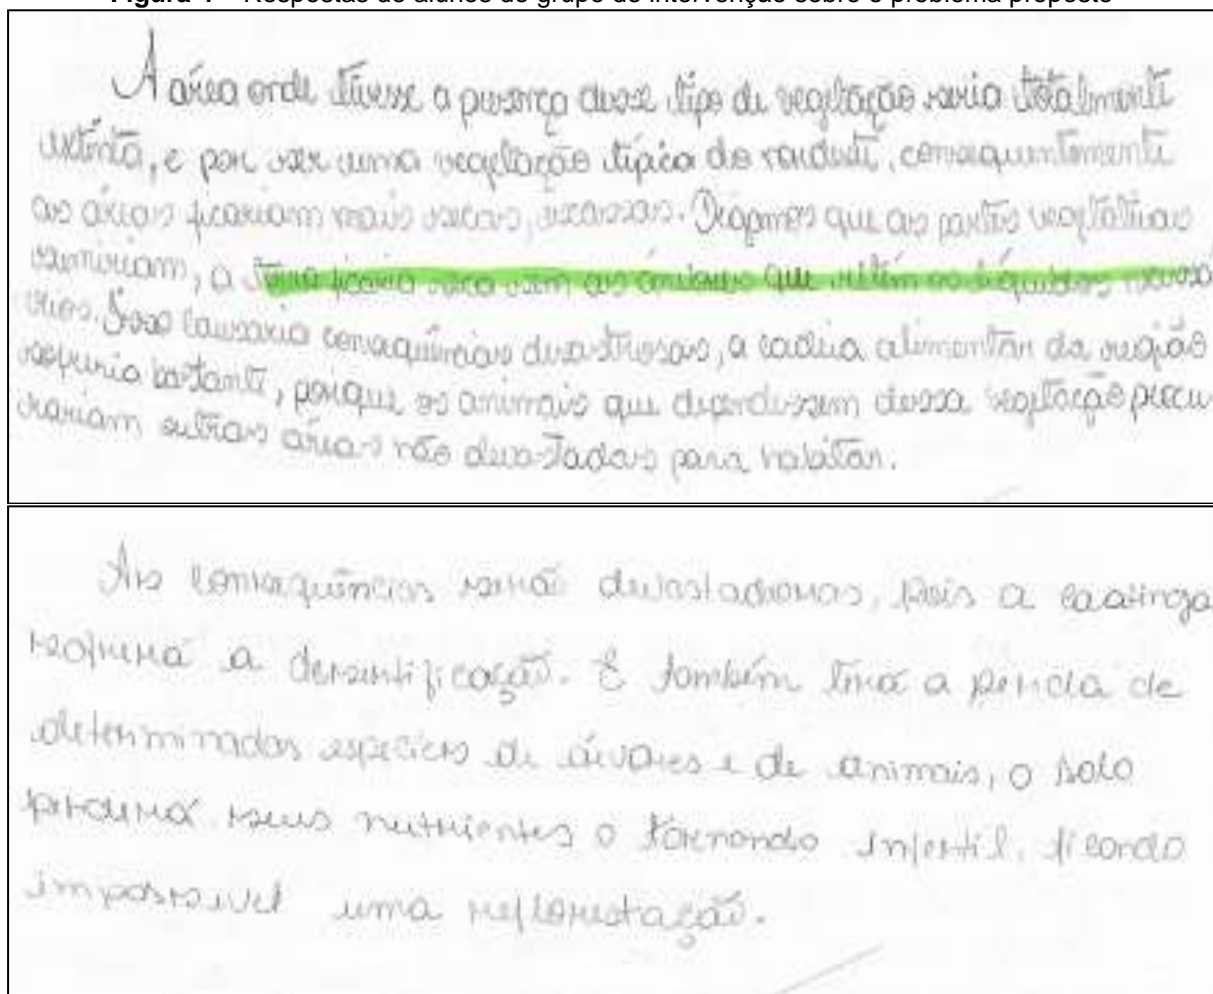 Figura 4 – Respostas de alunos do grupo de intervenção sobre o problema proposto
A área onde tivesse a presença desse tipo de vegetação seria totalmente
extinta, e por ser uma vegetação típica do nordeste, consequentemente
as áreas ficariam mais secas, escassas. Digamos que as partes vegetativas
sumiriam, a terra ficaria seca sem as árvores que retém os líquidos necessá
rios. Isso causaria consequências desastrosas, a cadeia alimentar da região
sofreria bastante, porque os animais que dependessem dessa vegetação procu-
rariam outras áreas não devastadas para habitar.
As consequências serão devastadoras, pois a caatinga
sofrerá a desertificação. E também terá a perda de
determinadas espécies de árvores e de animais, o solo
perderá seus nutrientes o tornando infertil, ficando
impossivel uma reflorestação.